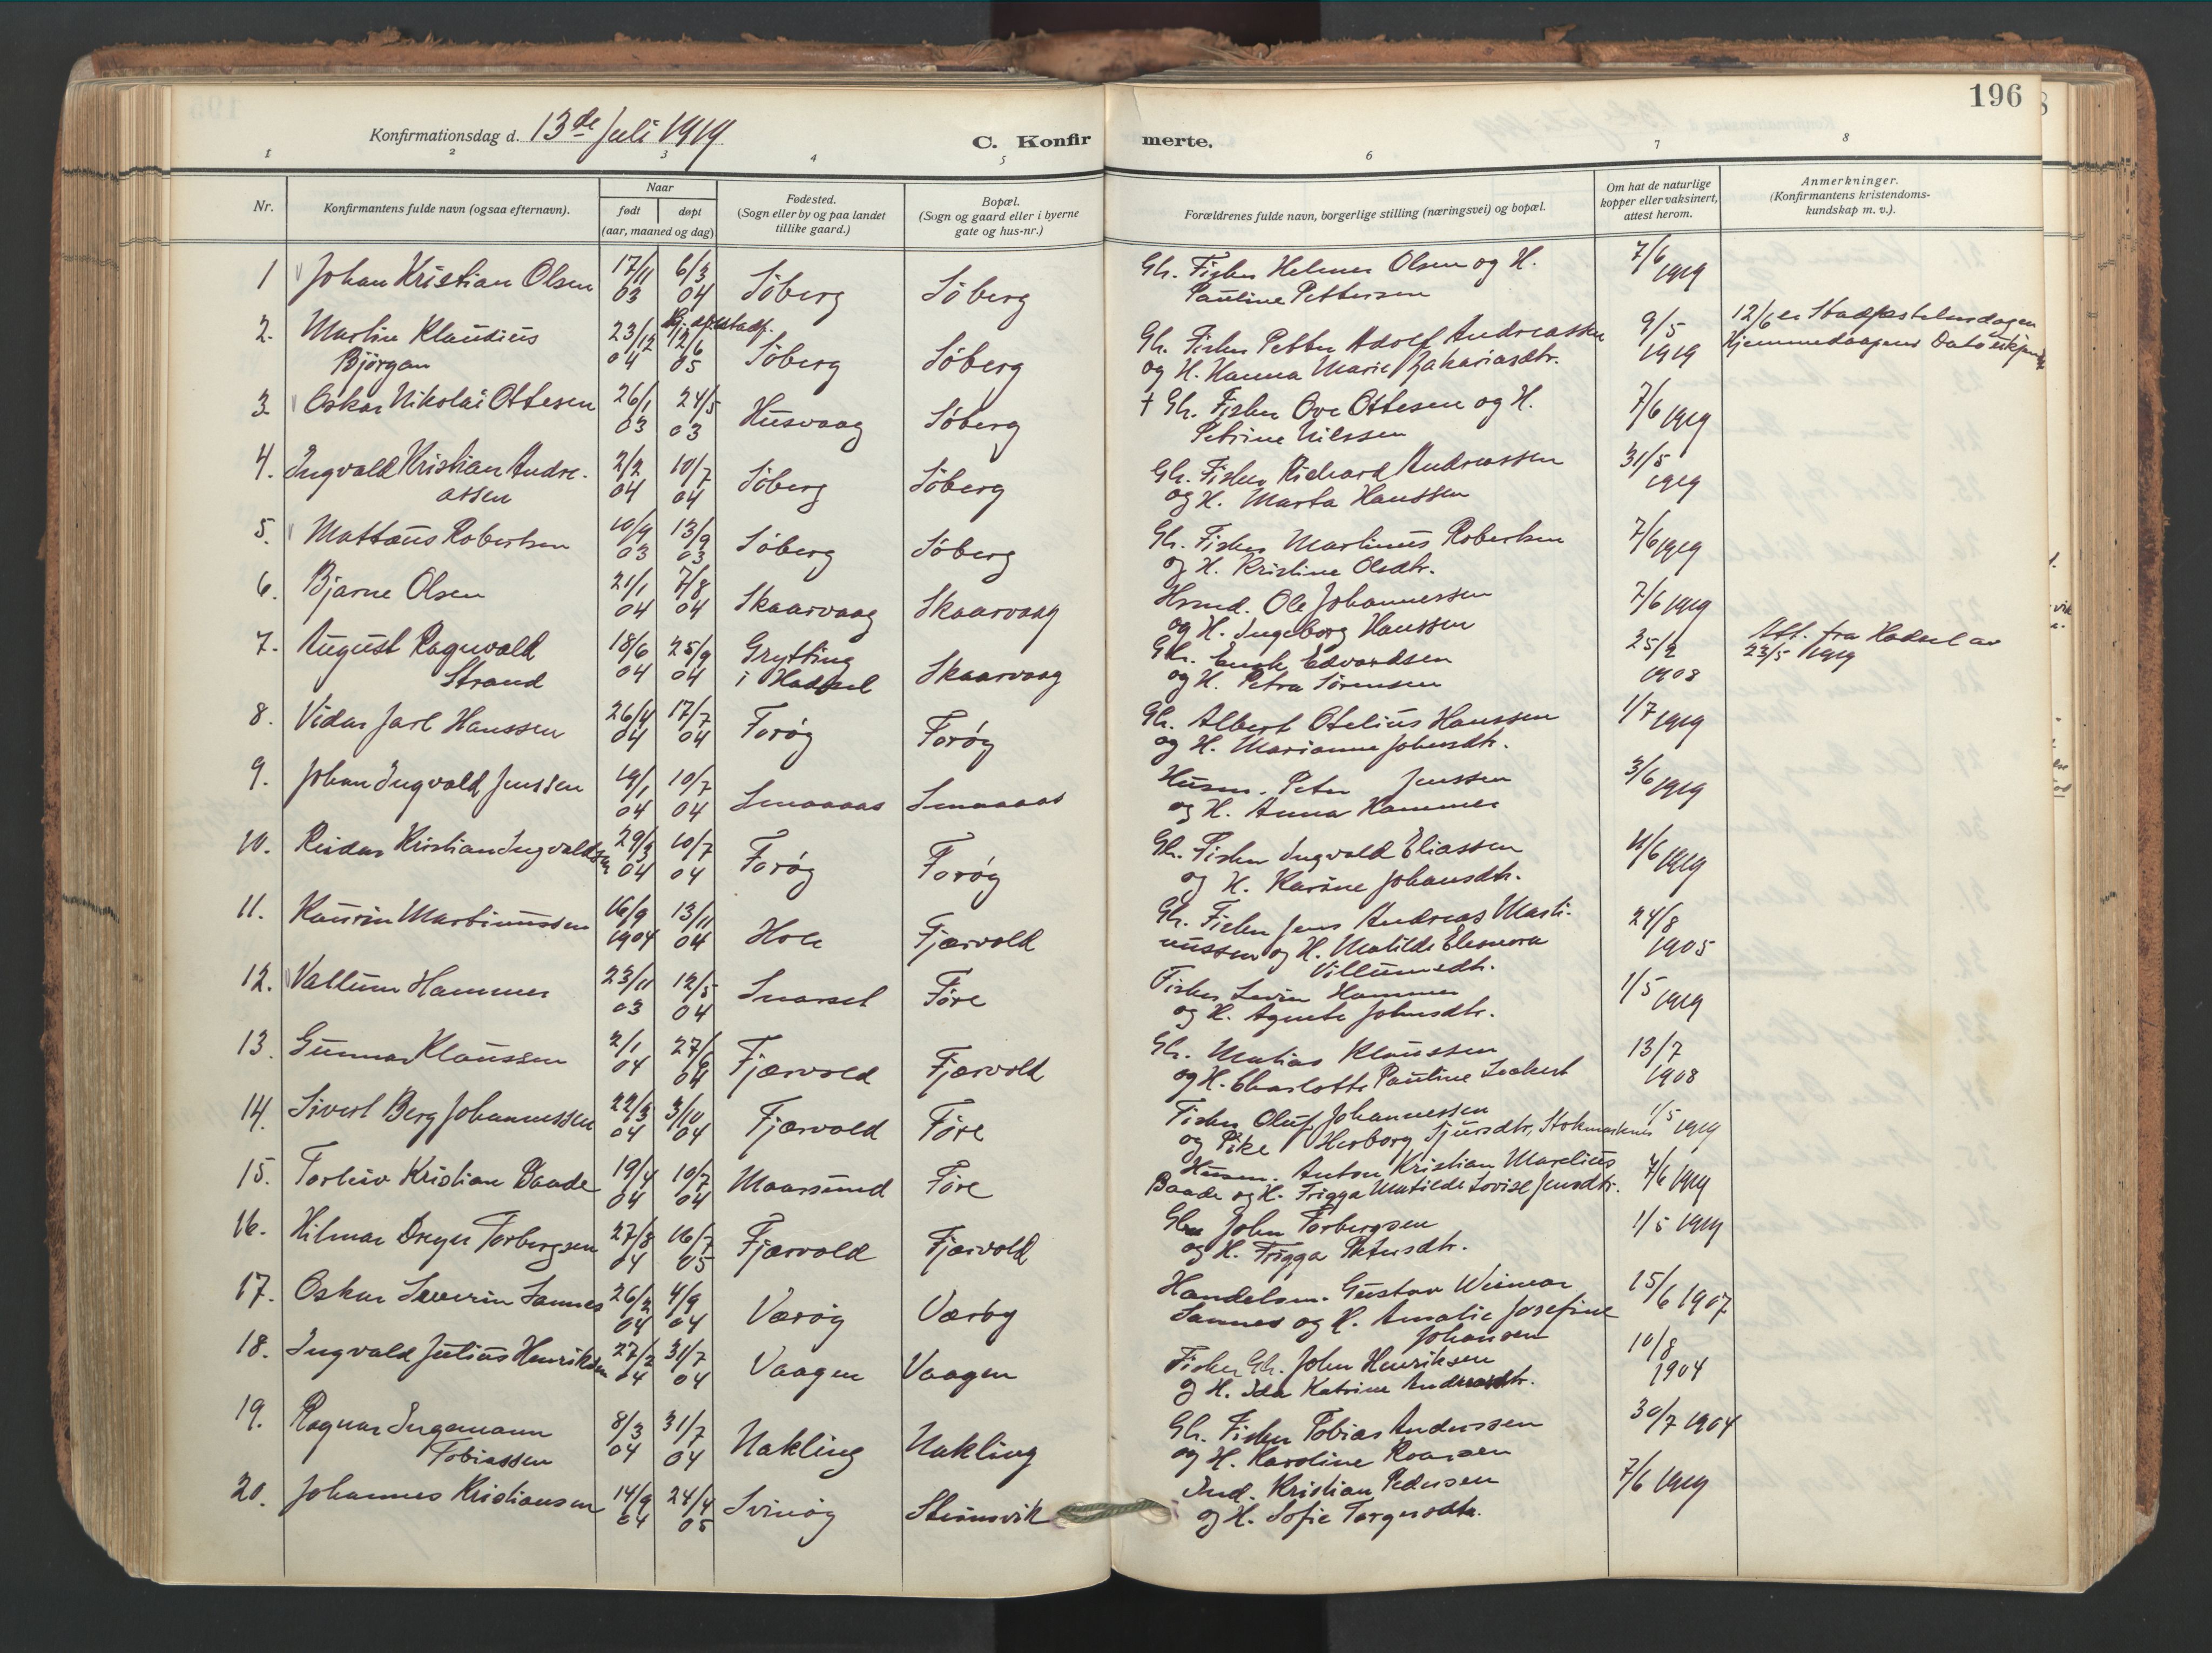 196
Konfirmationsdag d. 13de Juli 1919
C. Konfirmerte.
1 2 3 4 5 6 7 8
Nr.
Konfirmantens fulde navn (ogsaa efternavn).
Naar
født døpt
(aar, maaned og dag)
Fødested.
(Sogn eller by og paa landet
tillike gaard.)
Bopæl.
(Sogn og gaard eller i byerne
gate og hus-nr.)
Forældrenes fulde navn, borgerlige stilling (næringsvei) og bopæl.
Om hat de naturlige
kopper eller vaksinert,
attest herom.
Anmerkninger.
(Konfirmantens kristendoms-
kundskap m. v.).
1 Johan Kristian Olsen 17/11 6/3 Söberg Söberg Gh. Fisker Helmer Olsen og H. 7/6
03 04 Pauline Pettersen 1919
2. Martin Klaudius 23/12 12/6 Söberg Söberg Gh. Fisker Petter Adolf Andreassen 9/5 12/6 er Stadfæstelsesdagen
Björgan 04 05 og H. Hanna Marie Zakariasdtr. 1919 Hjemmedaapens Dato
3. Oskar Nikolai Ottesen 26/1 24/5 Husvaag Söberg † Gh. Fisker Ove Ottesen og H. 7/6 1919
03 03 Petrine Nilssen
4. Ingvald Kristian Andre- 2/2 10/7 Söberg Söberg Gh. Fisker Richard Andreassen 31/5
assen 04 04 og H. Marta Hanssen 1919
5. Mattæus Robertsen 10/9 13/9 Söberg Söberg Gh. Fisker Martinus Robertsen 7/6 1919
03 03 og H. Kristine Olsdtr.
6. Bjarne Olsen 21/1 7/8 Skaarvaag Skaarvaag Hsmd. Ole Johannessen 7/6 1919
04 04 og H. Ingeborg Hanssen
7. August Ragnvald 18/6 25/9 Grytting Skaarvaag Gh. Enok Edvardsen 25/2 Att. fra Hadsel av
Strand 04 04 i Hadsel og H. Petra Sörensen 1908 23/5 1919
8. Vidar Jarl Hanssen 26/4 17/7 Foröy Foröy Gh. Albert Otelius Hanssen 1/7 1919
04 04 og H. Marianne Johnsdtr.
9. Johan Ingvald Jenssen 19/1 10/7 Smaaaas Smaaaas Husm. Peter Jenssen 3/6 1919
04 04 og H. Anna Hammer
10. Reidar Kristian Ingvaldsen 29/3 10/7 Foröy Foröy Gh. Fisker Ingvald Eliassen 11/6 1919
04 04 og H. Karine Johansdtr.
11. Kaurin Martinussen 16/9 13/11 Hole Fjærvold Gh. Fisker Jens Andreas Marti- 24/8
1904 04 nussen og H. Matilde Eleonora 1905
Villumsdtr.
12. Vallum Hammer 23/11 12/5 Snarset Före Fisker Levin Hammer 1/5 1919
03 04 og H. Agnete Johnsdtr.
13. Gunnar Klaussen 2/1 27/6 Fjærvold Fjærvold Gh. Matias Klaussen 13/7
04 04 og H. Charlotte Pauline 1908
14. Sivert Berg Johannessen 22/3 3/10 Fjærvold Före Fisker Oluf Johannessen 1/5 1919
04 04 og Pike Herborg Sjursdtr, Stokmarknes
15. Torleiv Kristian Baade 19/4 10/7 Maarsund Före Husm. Anton Kristian Marelius 7/6 1919
04 04 Baade og H. Frigga Matilde Lovise Jensdtr.
16. Hilmar Dreyer Torbergsen 27/8 16/7 Fjærvold Fjærvold Gh. John Torbergsen 1/5 1919
04 05 og H. Frigga Petersdtr.
17. Oskar Severin Sannes 26/2 4/9 Væröy Væröy Handelsm. Gustav Weimar 15/6 1907
04 04 Sannes og H. Amalie Josefine
Johansen
18. Ingvald Julius Henriksen 27/2 31/7 Vaagen Vaagen Fisker Gh. John Henriksen 10/8
04 04 og H. Ida Katrine Andreasdtr. 1904
19. Ragnar Ingemann 8/3 31/7 Nakling Nakling Gh. Fisker Tobias Anderssen 30/7 1904
Tobiassen 04 04 og H. Karoline Roarsen
20. Johannes Kristiansen 14/9 24/4 Svinöy Steinsvik Ind. Kristian Pedersen 7/6 1919
04 05 og H. Sofie Torgersdtr.